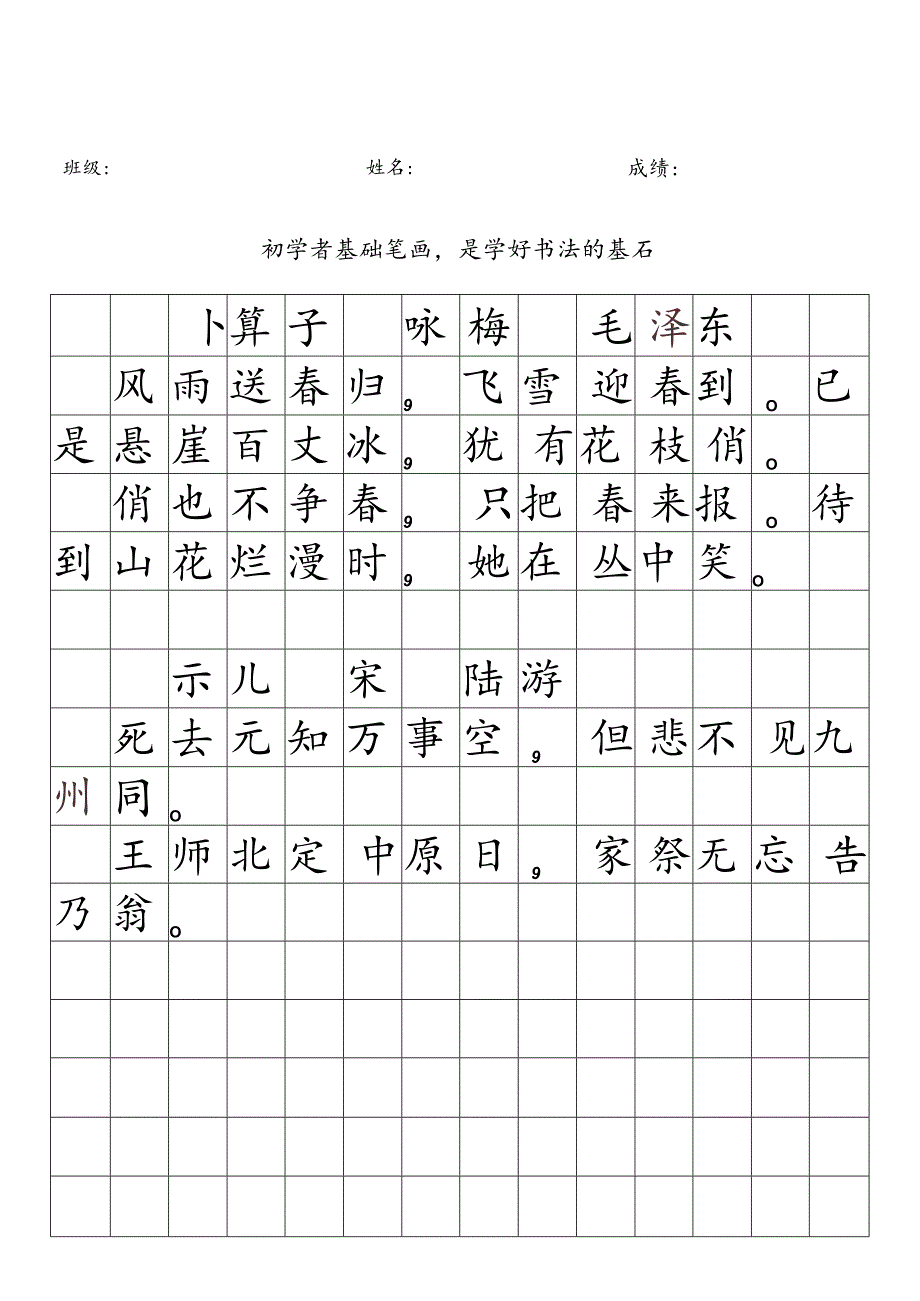 班级： 姓名： 成绩：
初学者基础笔画，是学好书法的基石
卜算子 咏梅 毛泽东
风雨送春归，飞雪迎春到。已
是悬崖百丈冰，犹有花枝俏。
俏也不争春，只把春来报。待
到山花烂漫时，她在丛中笑。
示儿 宋 陆游
死去元知万事空，但悲不见九
州同。
王师北定中原日，家祭无忘告
乃翁。